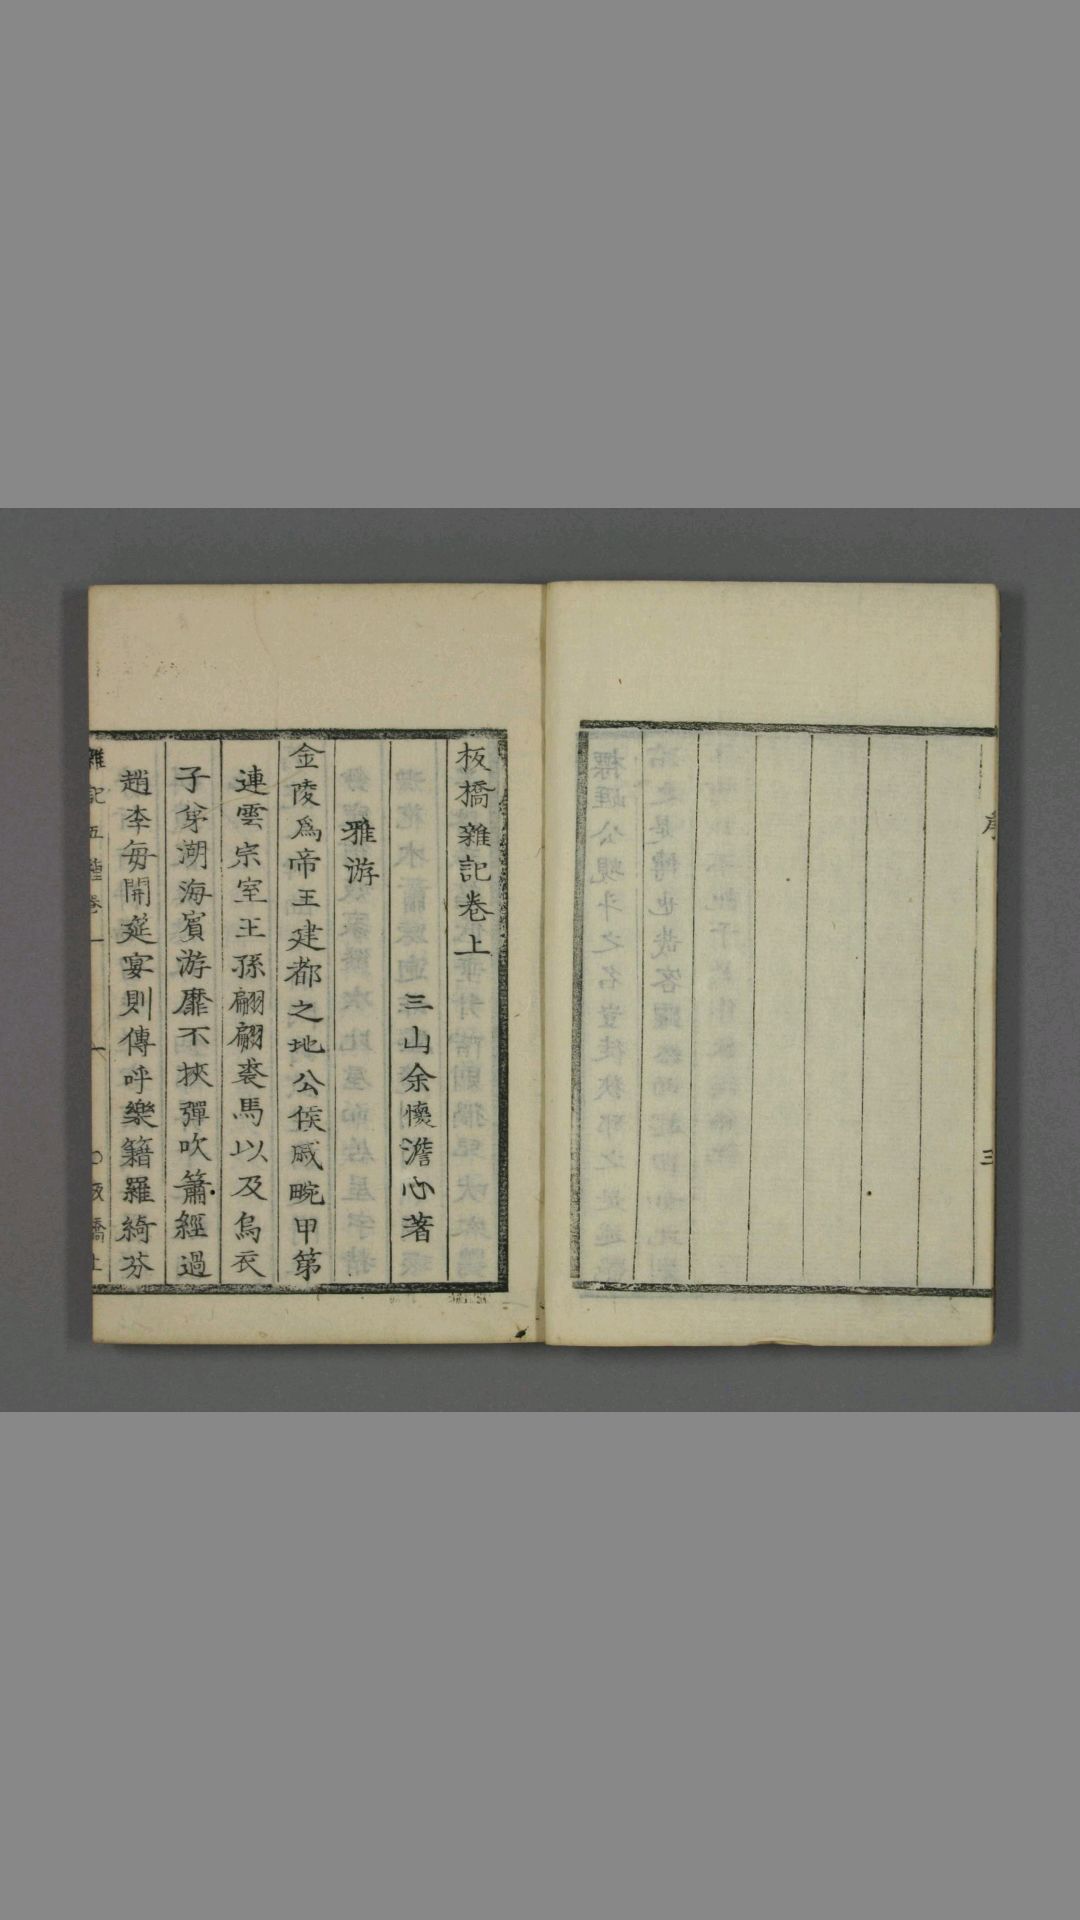 序
三
板橋雜記卷上
三山余懷澹心著
雅游
金陵爲帝王建都之地公侯戚畹甲第
連雲宗室王孫翩翩裘馬以及烏衣
子弟湖海賓游靡不挾彈吹簫經過
趙李每開筵宴則傳呼樂籍羅綺芬
雜記五種卷一
一
板橋上